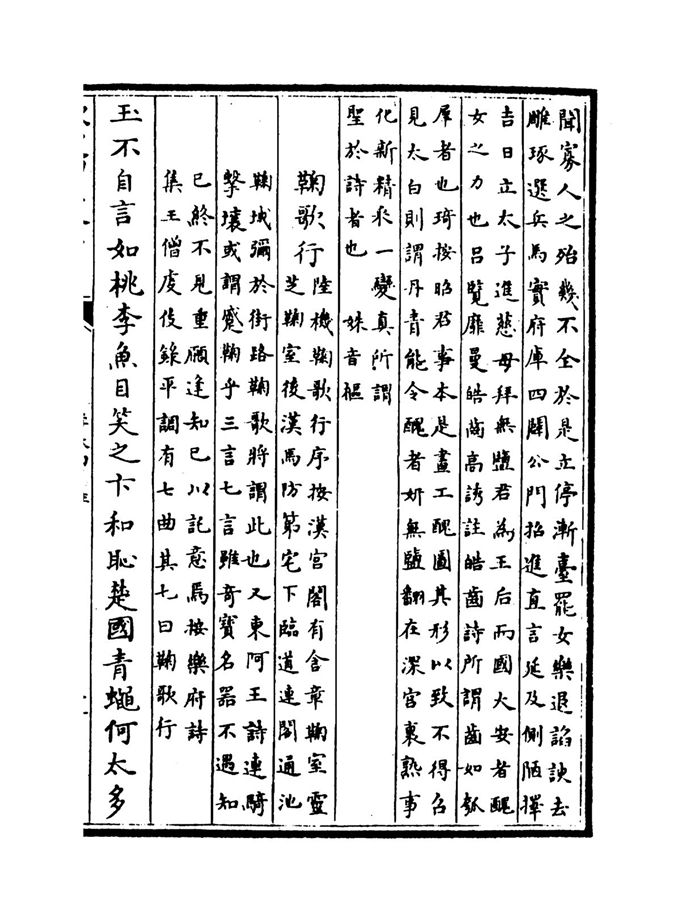 聞寡人之殆幾不全於是立停漸臺罷女樂退諂諛去
雕琢選兵馬實府庫四闢公門招進直言延及側陋擇
吉日立太子進慈母拜無鹽君為王后而國大安者醜
女之力也吕覽靡曼皓齒高誘註皓齒詩所謂齒如瓠
犀者也琦按昭君事本是畫工醜圖其形以致不得召
見太白則謂丹青能令醜者妍無鹽翻在深宫裏熟事
化新精采一變真所謂
聖於詩者也 姝音樞
鞠歌行
陸機鞠歌行序按漢宫閣有含章鞠室靈
芝鞠室後漢馬防第宅下臨道連閣通池
鞠城彌於街路鞠歌將謂此也又東阿王詩連騎
擊壤或謂蹙鞠乎三言七言雖奇寶名器不遇知
已終不見重願逢知已以託意焉按樂府詩
集王僧虔伎錄平調有七曲其七曰鞠歌行
玉不自言如桃李魚目笑之卞和恥楚國青蠅何太多